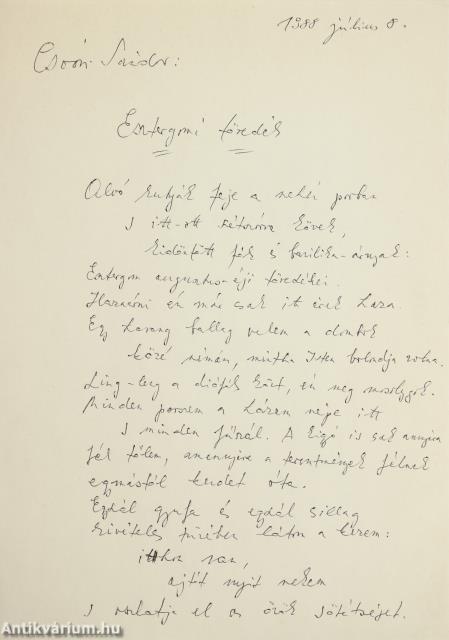 1988 július 8.
Csoóri Sándor:
Esztergomi töredék
Alvó kutyák feje a nehéz porban
s itt-ott szétszórva kövek,
kidöntött fák és bazilika-árnyak:
Esztergom augusztus-éji töredékei.
Hazatérni én már csak ide
Egy harang ballag velem a dombok
közé némán, mintha Isten bolondja volna.
Ling-leng a diófák közt, én meg mosolygok.
Minden porszem a házam népe itt
s minden fűszál. A kígyó is csak annyira
fél tőlem, amennyire a teremtmények félnek
egymástól kezdet óta.
Ezdál gyufa és ezdál csillag
szövetséges tüzében látom a kezem:
itthon van,
ajtót nyit nekem
s oszlatja el az örök sötétséget.
Antikvárium.hu